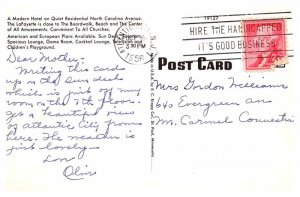 A Modern Hotel on Quiet Residential North Carolina Avenue.
The LaFayette is close to the Boardwalk, Beach and The Center
of All Amusements. Convenient To All Churches.
American and European Plans Available, Sun Decks,
Spacious Lounge, Game Room, Cocktail Lounge,
Children's Playground.
Dear Mother,
Writing this card
up on the Sun deck
which is just off my
room on the 7th floor.
Get a beautiful view
of Atlantic City from
here. The weather is
just lovely.
Love
Olin
PM
1956
HIRE THE HANDICAPPED
IT'S GOOD BUSINESS
POST CARD
Mrs Gordon Williams
640 Evergreen Ave
Mt. Carmel Connecticut